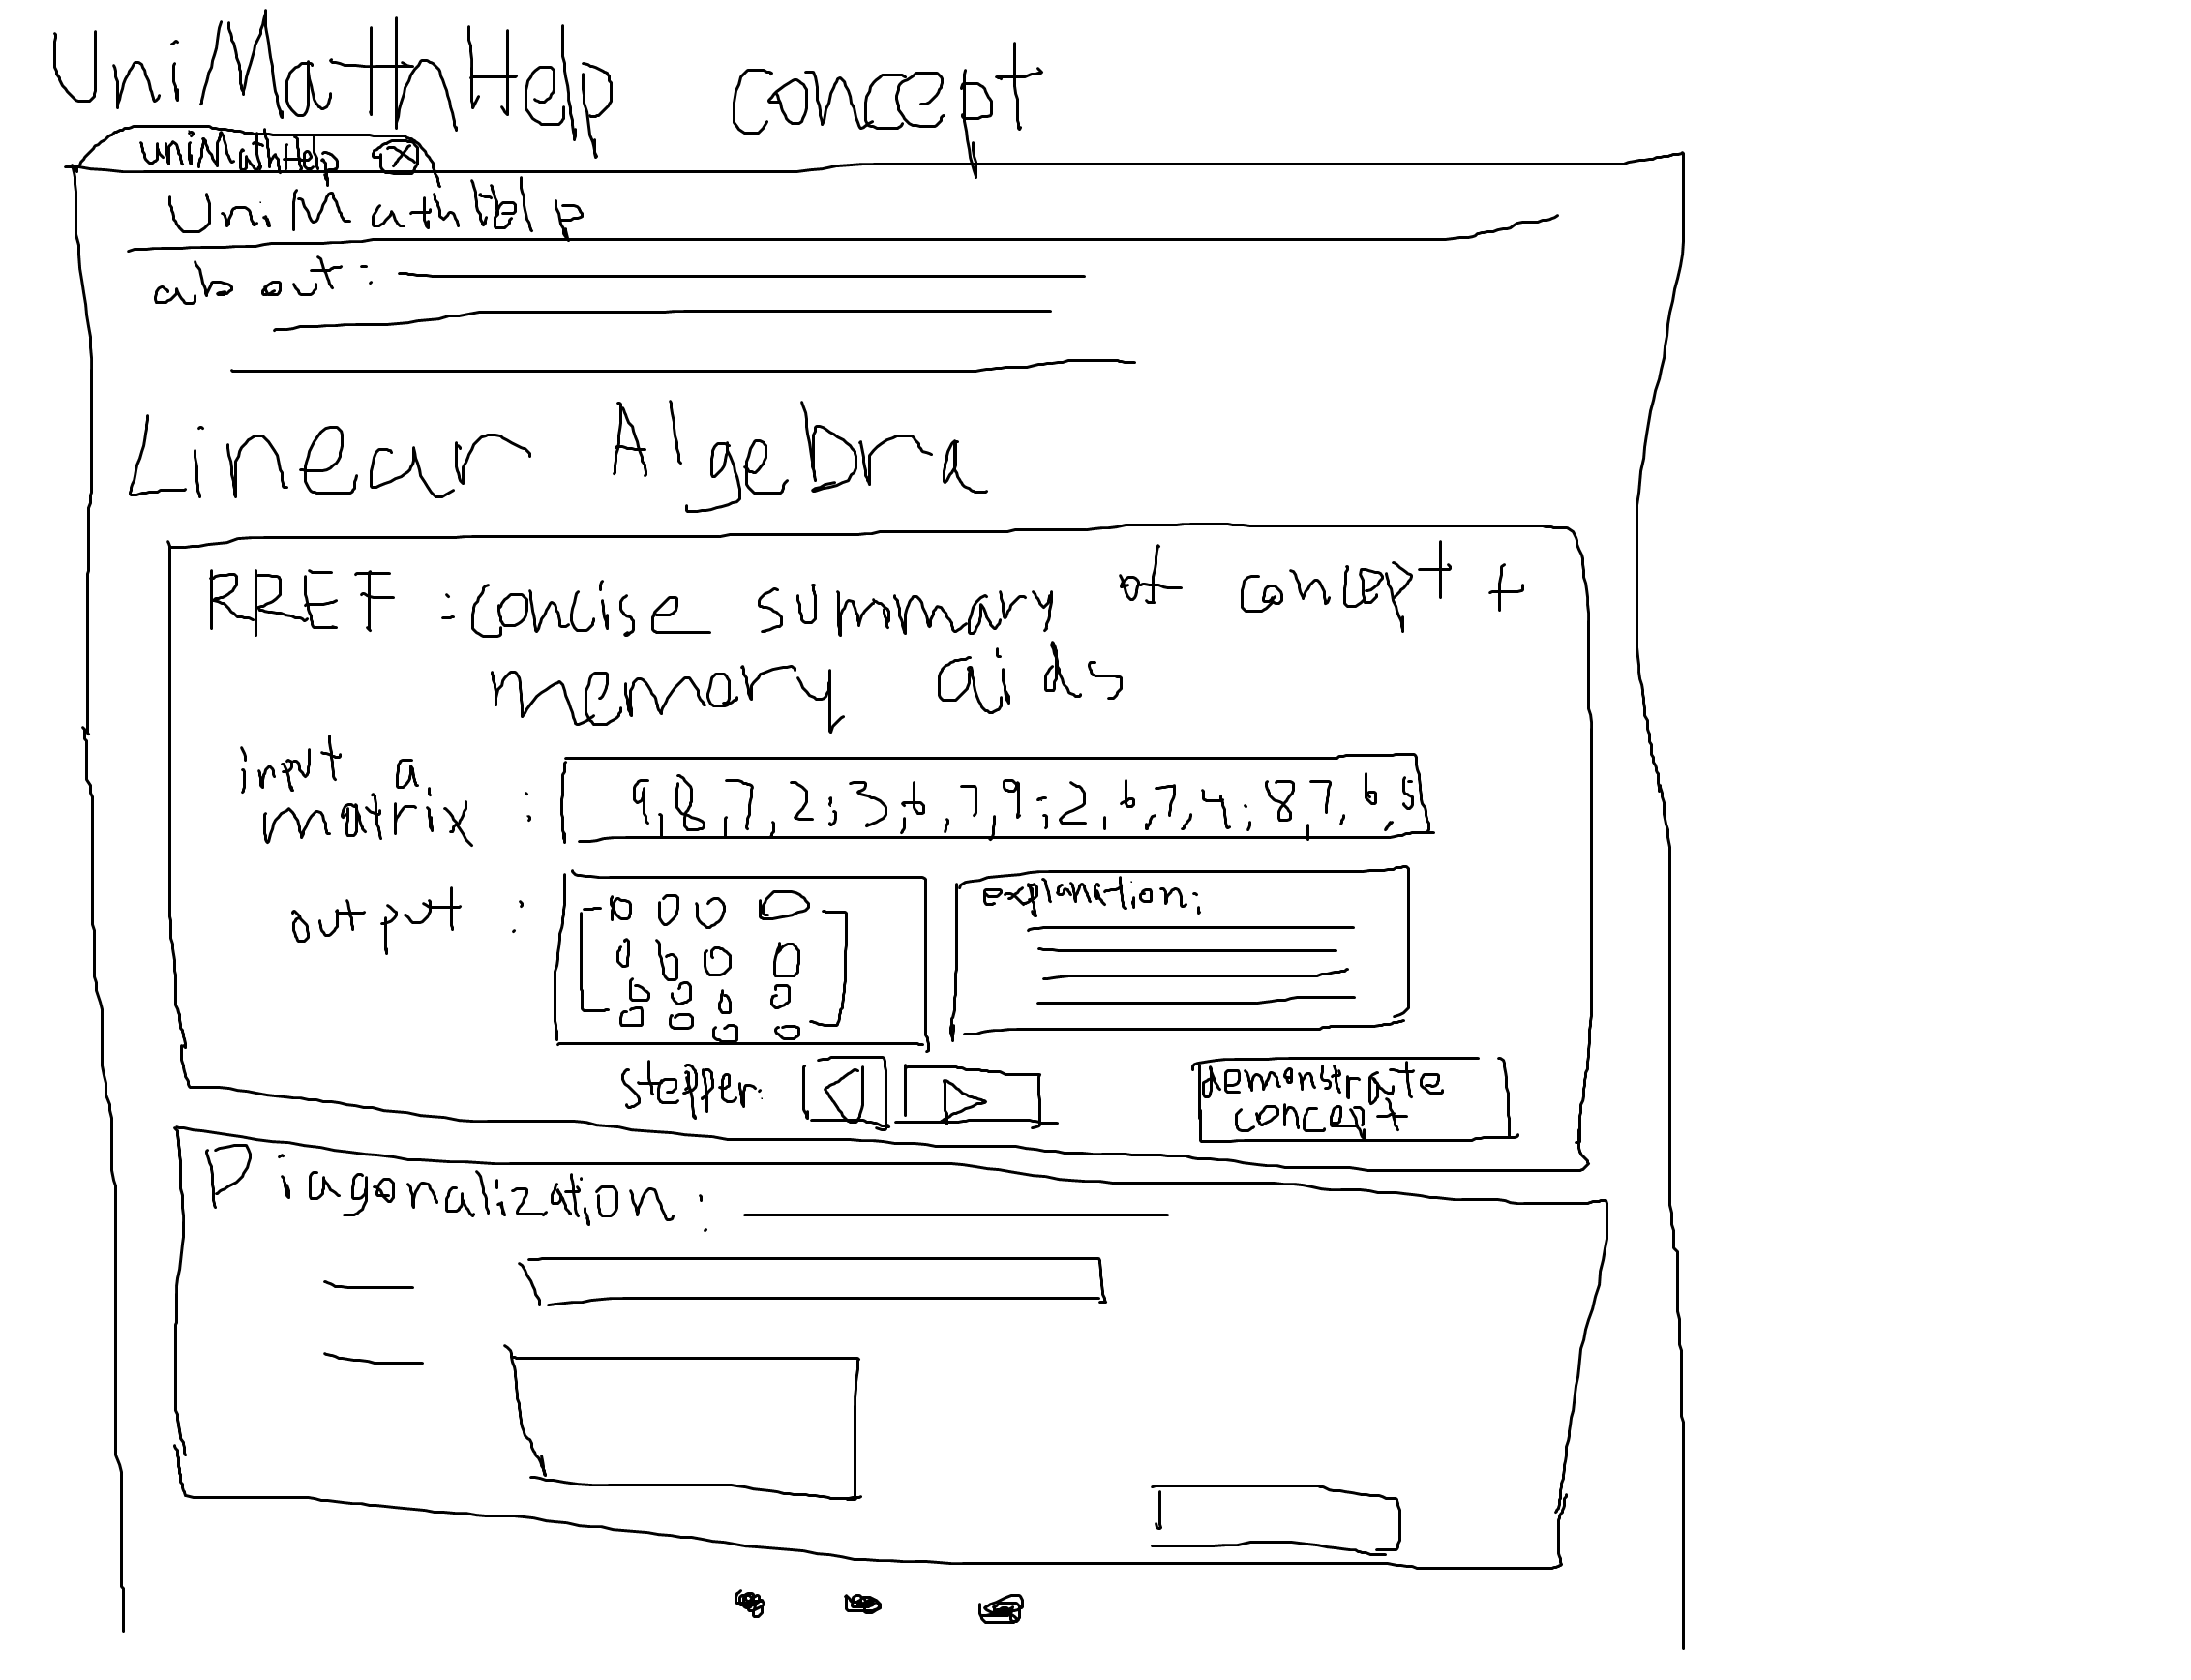 UniMathHelp concept
uniMathHelp X
UniMathHelp
about:
Linear Algebra
RREF: concise summary of concept +
memory aids
input a
matrix : 9,8,7,2;3,6,7,9;2,6,7,4;8,7,6,5
output :
explanation:
stepper:
demonstrate
concept
Diagonalization: